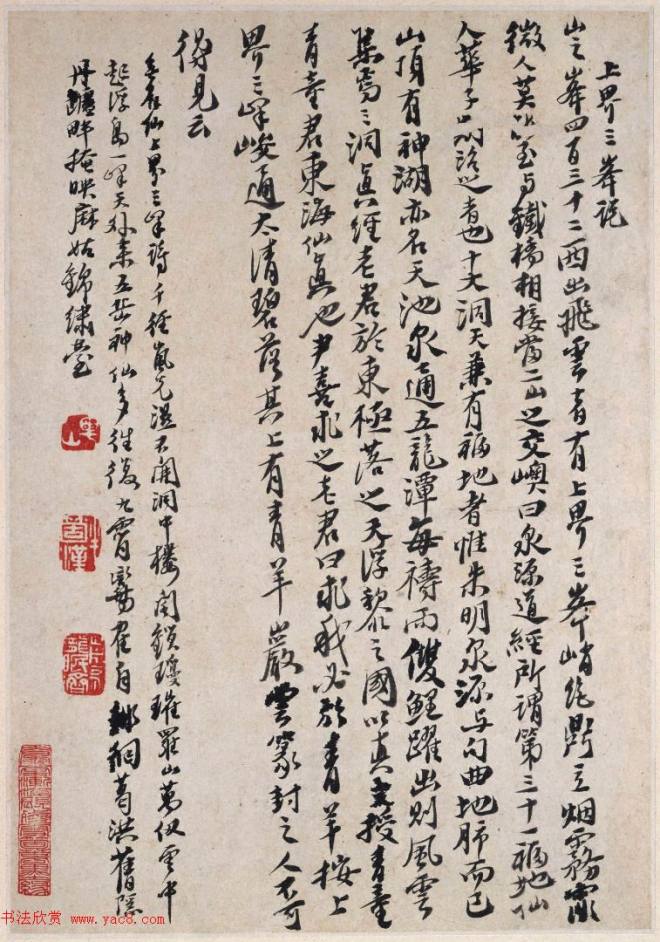 上界三峯說
山之峯四百三十二西出飛雲者有上界三峯峭絶鼎立烟霧霏
微人莫與鐵橋相接當二山之交嶼曰泉源道經所謂第三十一福地仙
人華子期治之者也十大洞天兼有福地者惟朱明泉源与句曲地肺而已
山頂有神湖亦名天池泉通五龍潭每禱雨雙鯉躍出則風雲
集焉三洞真經老君於東極落之天浮黎之國以真文授青童
青童君東海仙真也尹喜求之老君曰求我必於青羊按上
界三峰峻通太清碧落其上有青羊巖雲篆封之人不可
得見云
仙上界三峰詩千徑嵐光濕不開洞中樓閣鎖瓊瑰羅山萬仞雲中
起浮島一峰天外來五岳神仙多往復九霄鸞雀自徘徊葛洪舊隱
丹爐畔掩映麻姑錦繡臺
书法欣赏 www.yac8.com